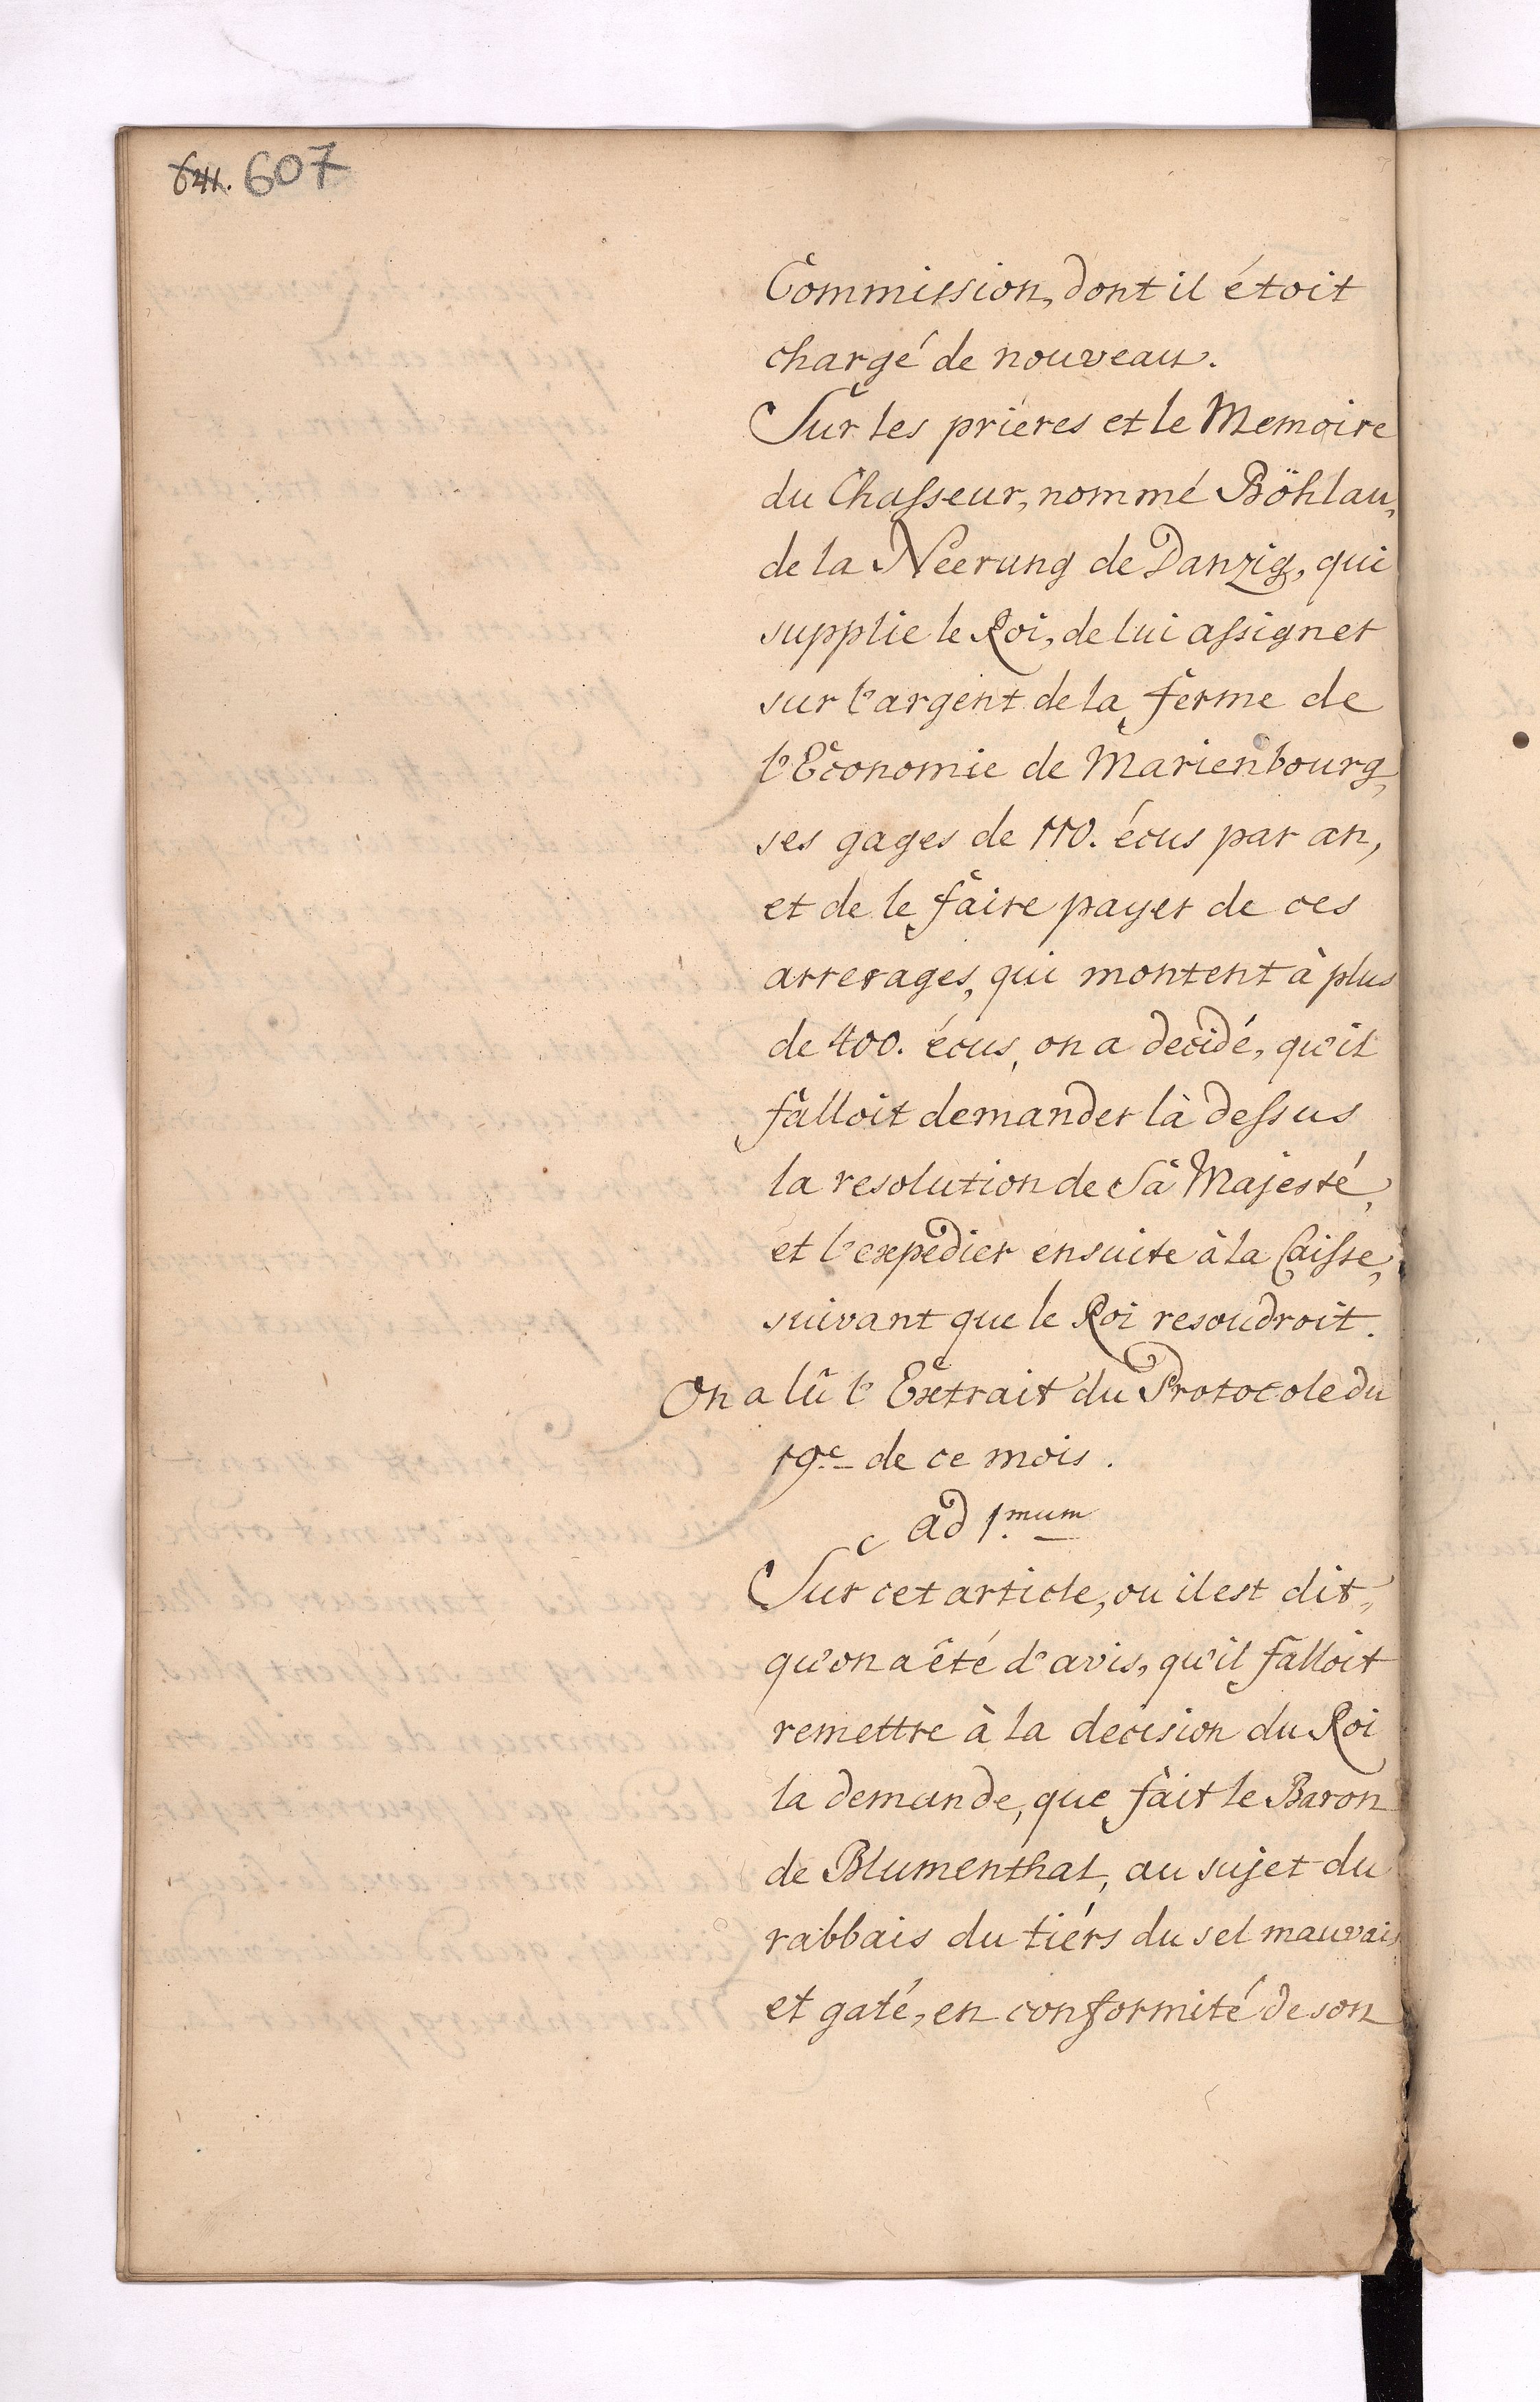 641. 607
Commission, dont il étoit
chargé de nouveau.
Sur les prieres et le Memoire
du Chasseur, nommé Böhlau,
de la Neerung de Danzig, qui
supplie le Roi, de lui assigner
sur l'argent de la ferme de
l'Economie de Marienbourg,
ses gages de 110. écus par an,
et de le faire payer de ces
arrerages, qui montent à plus
de 400. écus, on a decidé, qu'il
falloit demander là dessus
la resolution de Sa Majesté,
et l'expedier ensuite à la Caisse,
suivant que le Roi resoudroit.
On a lû l'Extrait du Protocole du
19.e de ce mois.
ad 1.mum
Sur cet article, ou il est dit,
qu'on a été d'avis, qu'il falloit
remettre à la decision du Roi
la demande, que fait le Baron
de Blumenthal, au sujet du
rabbais du tiérs du sel mauvais
et gaté, en conformité de son